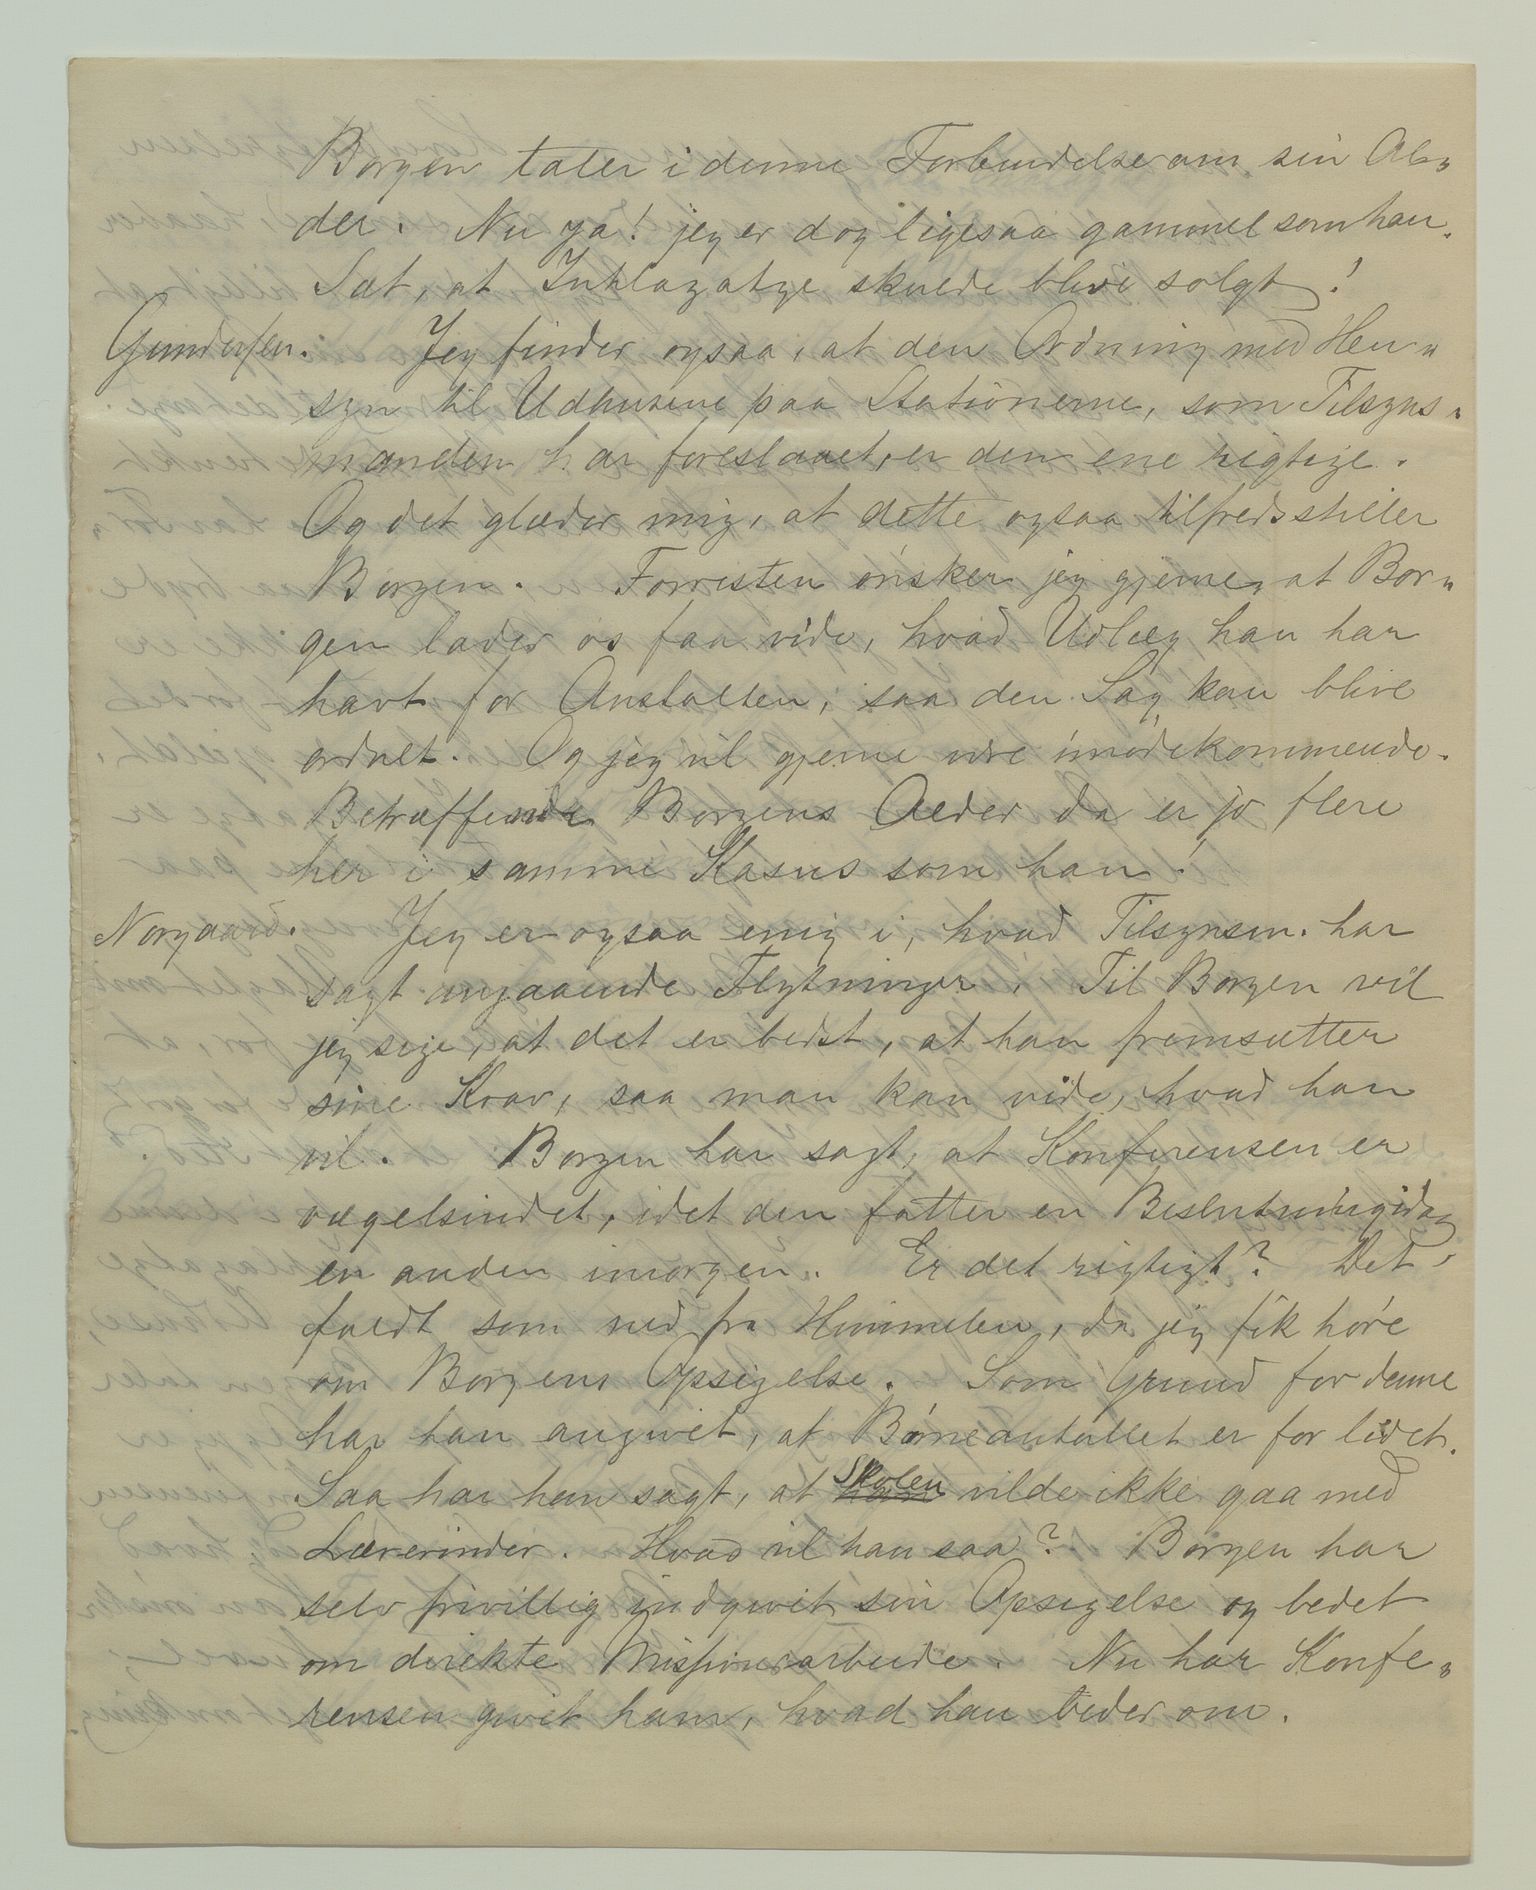 Borgen taler i denne Forbindelse om sin Al„
der. Nu ja! jeg er dog ligesaa gammel som han.
Sæt, at Inhlazatye skulde blive solgt!
Gundersen. Jeg finder ogsaa, at den Ordning med Hen„
syn til Udhusene paa Stationerne, som Tilsyns„
manden har foreslaaet, er den ene rigtige.
Og det glæder mig, at dette ogsaa tilfredsstiller
Borgen. Forresten ønsker jeg gjerne, at Bor„
gen lader os faa vide, hvad Udlæg han har
havt for Anstalten, saa den Sag kan blive
ordnet. Og jeg vil gjerne være imødekommende.
Betræffende Borgens Alder da er jo flere
her i samme Kasus som han!
Norgaard. Jeg er ogsaa enig i, hvad Tilsynsm. har
sagt angaaende Flytninger. Til Borgen vil
jeg sige, at det er bedst, at han fremsætter
sine Krav, saa man kan vide, hvad han
vil. Borgen har sagt, at Konferensen er
vægelsindet, idet den fatter en Beslutning idag
en anden imorgen. Er det rigtigt? Det
faldt som ned fra Himmelen, da jeg fik høre
om Borgens Opsigelse. Som Grund for denne
har han angivet, at Børneantallet er for lidet.
Saa har han sagt, at Skolen vilde ikke gaa med
Lærerinder. Hvad vil han saa? Borgen har
selv frivillig indgivet sin Opsigelse og bedet
om direkte Missionsarbeide. Nu har Konfe„
rensen givet ham, hvad han beder om.